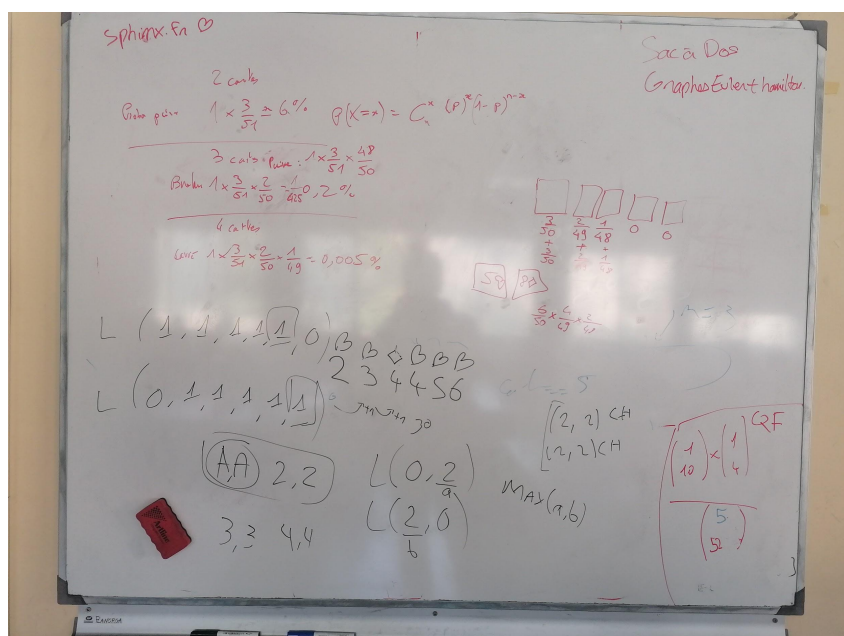 Sphinx.Fn ♡
Sac à Dos
Graphes Euler et hamilton.
2 cartes
Proba paire 1 × 3/51 = 6% P(X=x) = C_n^x (p)^x (1-p)^(n-x)
3 cartes Paire : 1 × 3/51 × 48/50
Brelan 1 × 3/51 × 2/50 = 1/425 0,2%
4 cartes
Carré 1 × 3/51 × 2/50 × 1/49 = 0,005%
3/50 2/49 1/48 0 0
+ + +
3/50
L (1, 1, 1, 1, 1, 0)
2 3 4 4 5 6
L (0, 1, 1, 1, 1, 1)
30
== 5
[(2, 2) CH
(2, 2) CH
(A,A) 2,2
L(0, 2/a)
MAX(a,b)
3,3 4,4
L(2/b, 0)
QF
(1 10) × (1 4)
(5 52)
Artline